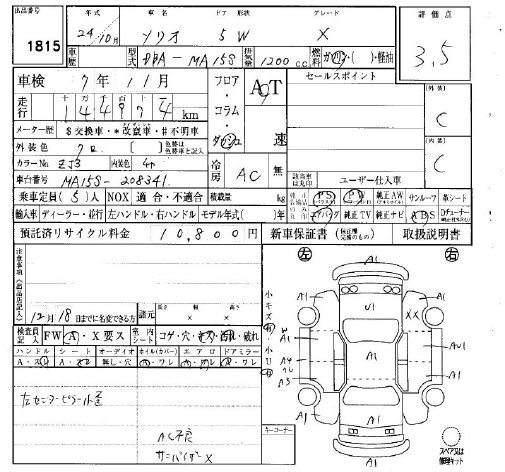 出品番号 1815
年式 車名 ドア 形状 グレード 評価点
24/10月 ソリオ 5W X 3,5
車歴 型式 DBA-MA15S 排気量 1200cc 燃料 ガソリン・( )・軽油
車検 7年11月 フロア・コラム・ダッシュ AT 速 セールスポイント 外装 C
走行 十 万 千 百 十 一 km
メーター歴 $交換車・*改竄車・#不明車
外装色 色替は色替車と記入 内装 C
カラーNo. ZJ3 内装色
車台番号 MA15S-208341 冷房 AC 無 該当車は丸印 ユーザー仕入車
乗車定員(5)人 NOX 適合・不適合 積載量 kg PS PW 純正AW サンルーフ 革シート
輸入車 ディーラー・並行 左ハンドル・右ハンドル モデル年式( )年 エアバッグ 純正TV 純正ナビ ABS
預託済リサイクル料金 10,800円 新車保証書(保証継承可能のもの) 取扱説明書
注意事項(出品店記入)
12月18日までに名変できる方 諸元 長さ 幅 高さ x x
左 右
検査員記入 FW A・X要ス 室内シート コゲ・穴・キズ・汚れ・破れ
ハンドル シート オーディオ ホイル(カバー) エアロ ドアミラー
A・ス 無し・穴 ワレ ワレ ワレ
左センターピラー小歪
AC不良
サンバイザーX
キーコーナー
小キズ有 小凹U
A1 A1 A1 U1 XX A1 A1 A4 A3 A1 AU1 A1 A1 A1 A1
スペアタイヤ又は修理キット